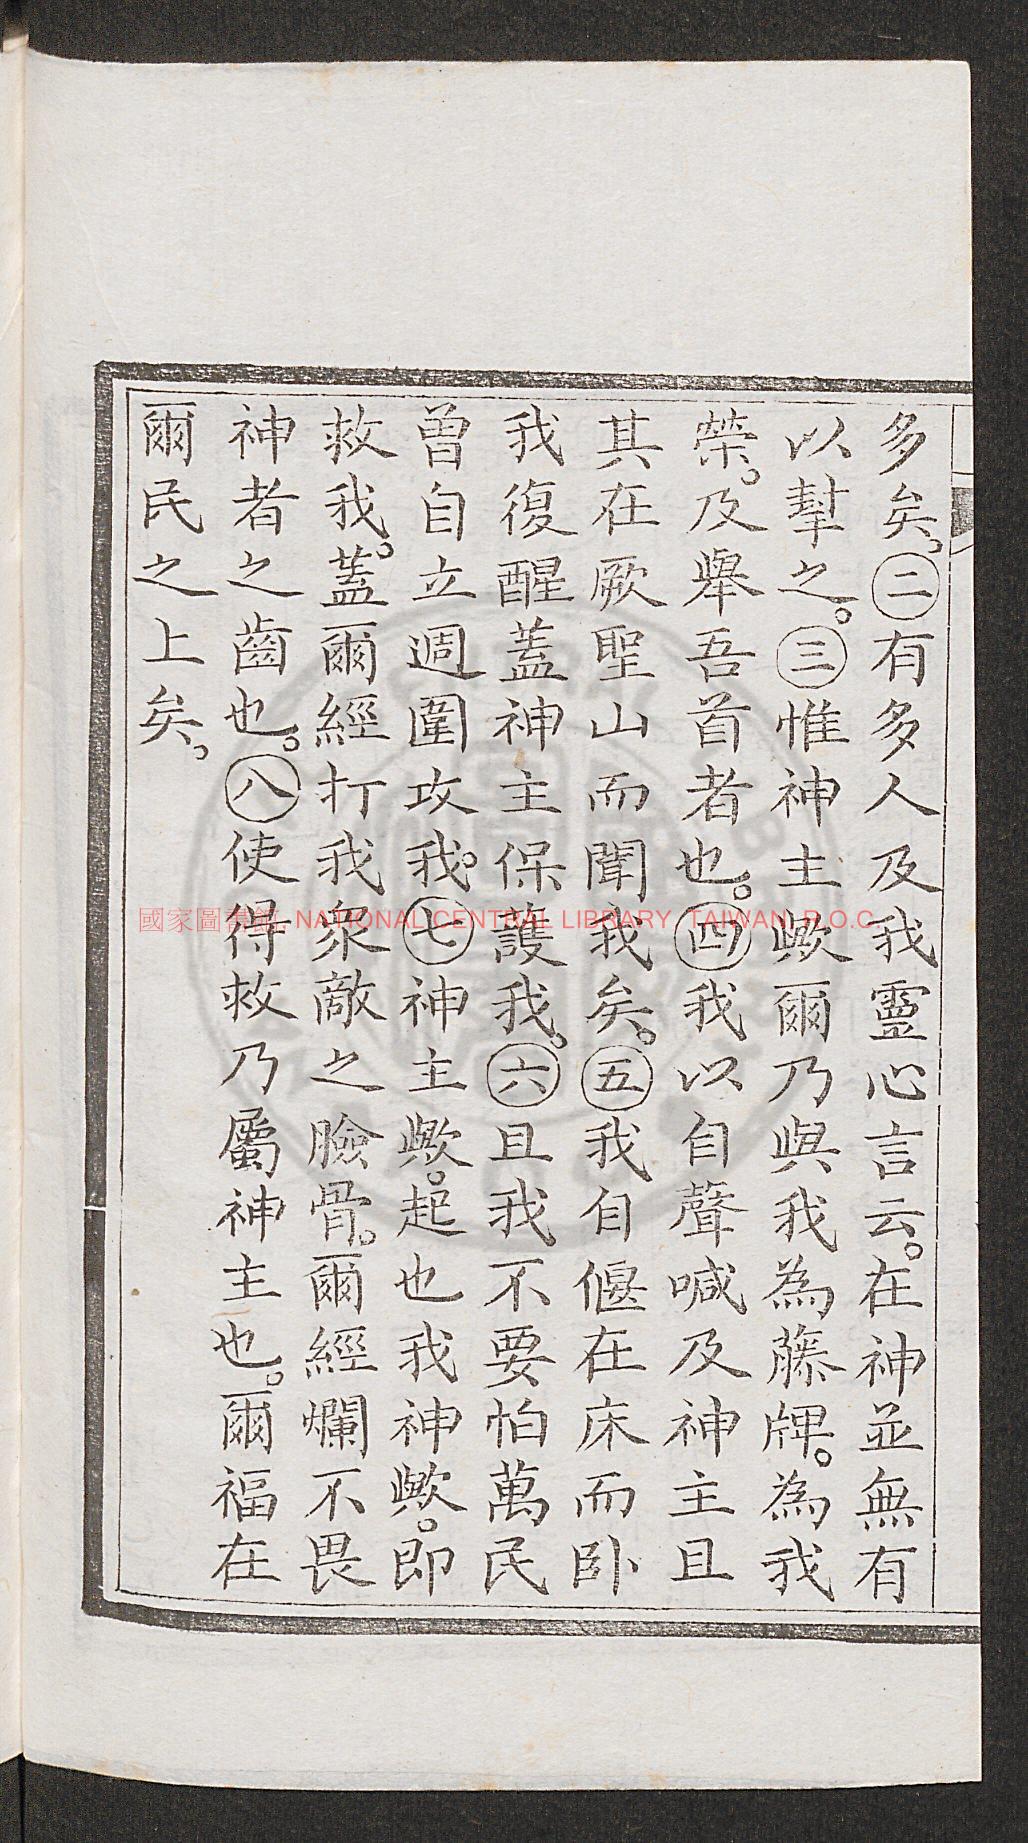 多矣。㊁有多多人及我靈心言云。在神並無有
以㨊之。㊂惟神主歟爾乃與我為藤牌。為我
榮。及舉吾首者也。㊃我以自聲喊及神主且
其在厥聖山而聞我矣。㊄我自偃在床而卧
我復醒蓋神主保護我。㊅且我不要怕萬民
曾自立週圍攻我。㊆神主歟。起也我神歟。即
救我。蓋爾經打我眾敵之臉骨。爾經爛不畏
神者之齒也。㊇使得救乃屬神主也。爾福在
爾民之上矣。
國家圖書館, NATIONAL CENTRAL LIBRARY, TAIWAN, R.O.C.